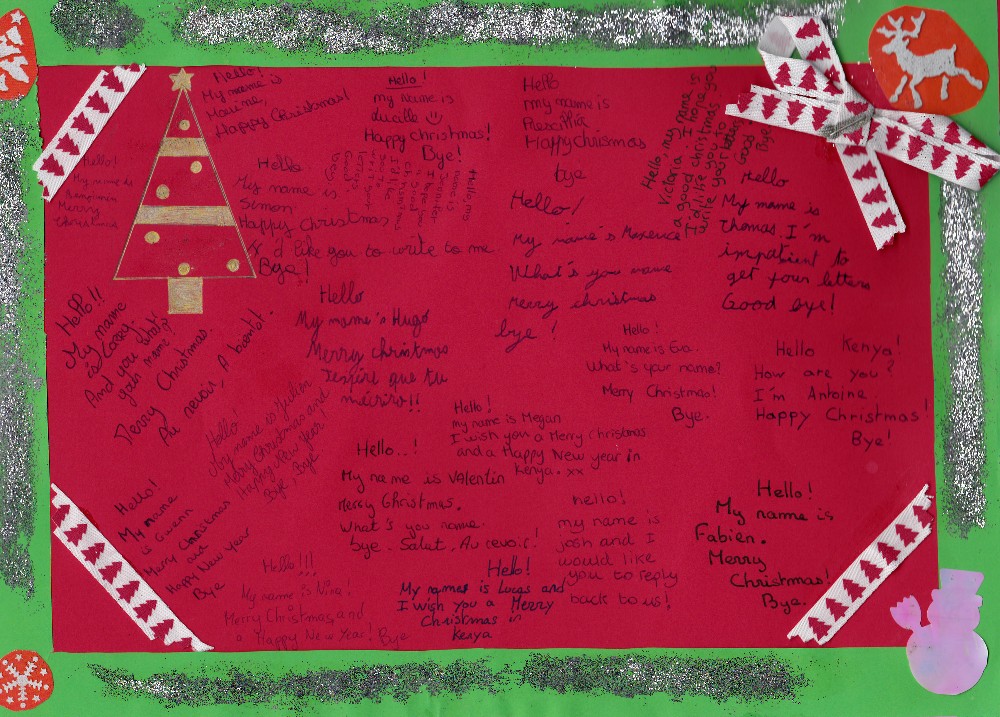 Hello!
My name is
Happy Christmas!
Hello!
my name is
Lucille
Happy christmas!
Bye!
Hello
my name is
Happy Chrismas
bye
Hello, my name is
Victoria. I hope you
a good christmas
I'd like you to
write your letters
Good
Bye
Hello!
My name is
Merry
Christmas
Hello
My name is
Simon
Happy Christmas,
I'd like you to write to me
Bye!
Hello!
My name's Maxence
What's you name
merry christmas
bye!
Hello
My name is
thomas. I'm
impatient to
get your letters
Good bye!
Hello!!
My name
is Correy.
And you what's
your name?
Merry Christmas.
Au revoir, A bientot.
Hello
My name's Hugo
Merry christmas
J'espère que tu
Hello!
My name is Eva.
What's your name?
Merry Christmas!
Bye.
Hello Kenya!
How are you?
I'm Antoine
Happy Christmas!
Bye!
Hello!
My name is Julien
Merry Christmas and
Happy New Year!
Bye, Bye
Hello!
my name is Megan
I wish you a Merry Christmas
and a Happy New year in
Kenya. xx
Hello..!
My name is Valentin
merry Christmas.
What's you name.
bye. Salut, Au revoir!
Hello!
My name
is Gwenn
Merry christmas
and
Happy New year
Bye
Hello!!!
My name is Nina!
Merry Christmas, and
a Happy New Year! Bye
Hello!
My names is Lucas and
I wish you a Merry
Christmas in
Kenya
hello!
my name is
josh and I
would like
you to reply
back to us!
Hello!
My name is
Fabien.
Merry
Christmas!
Bye.